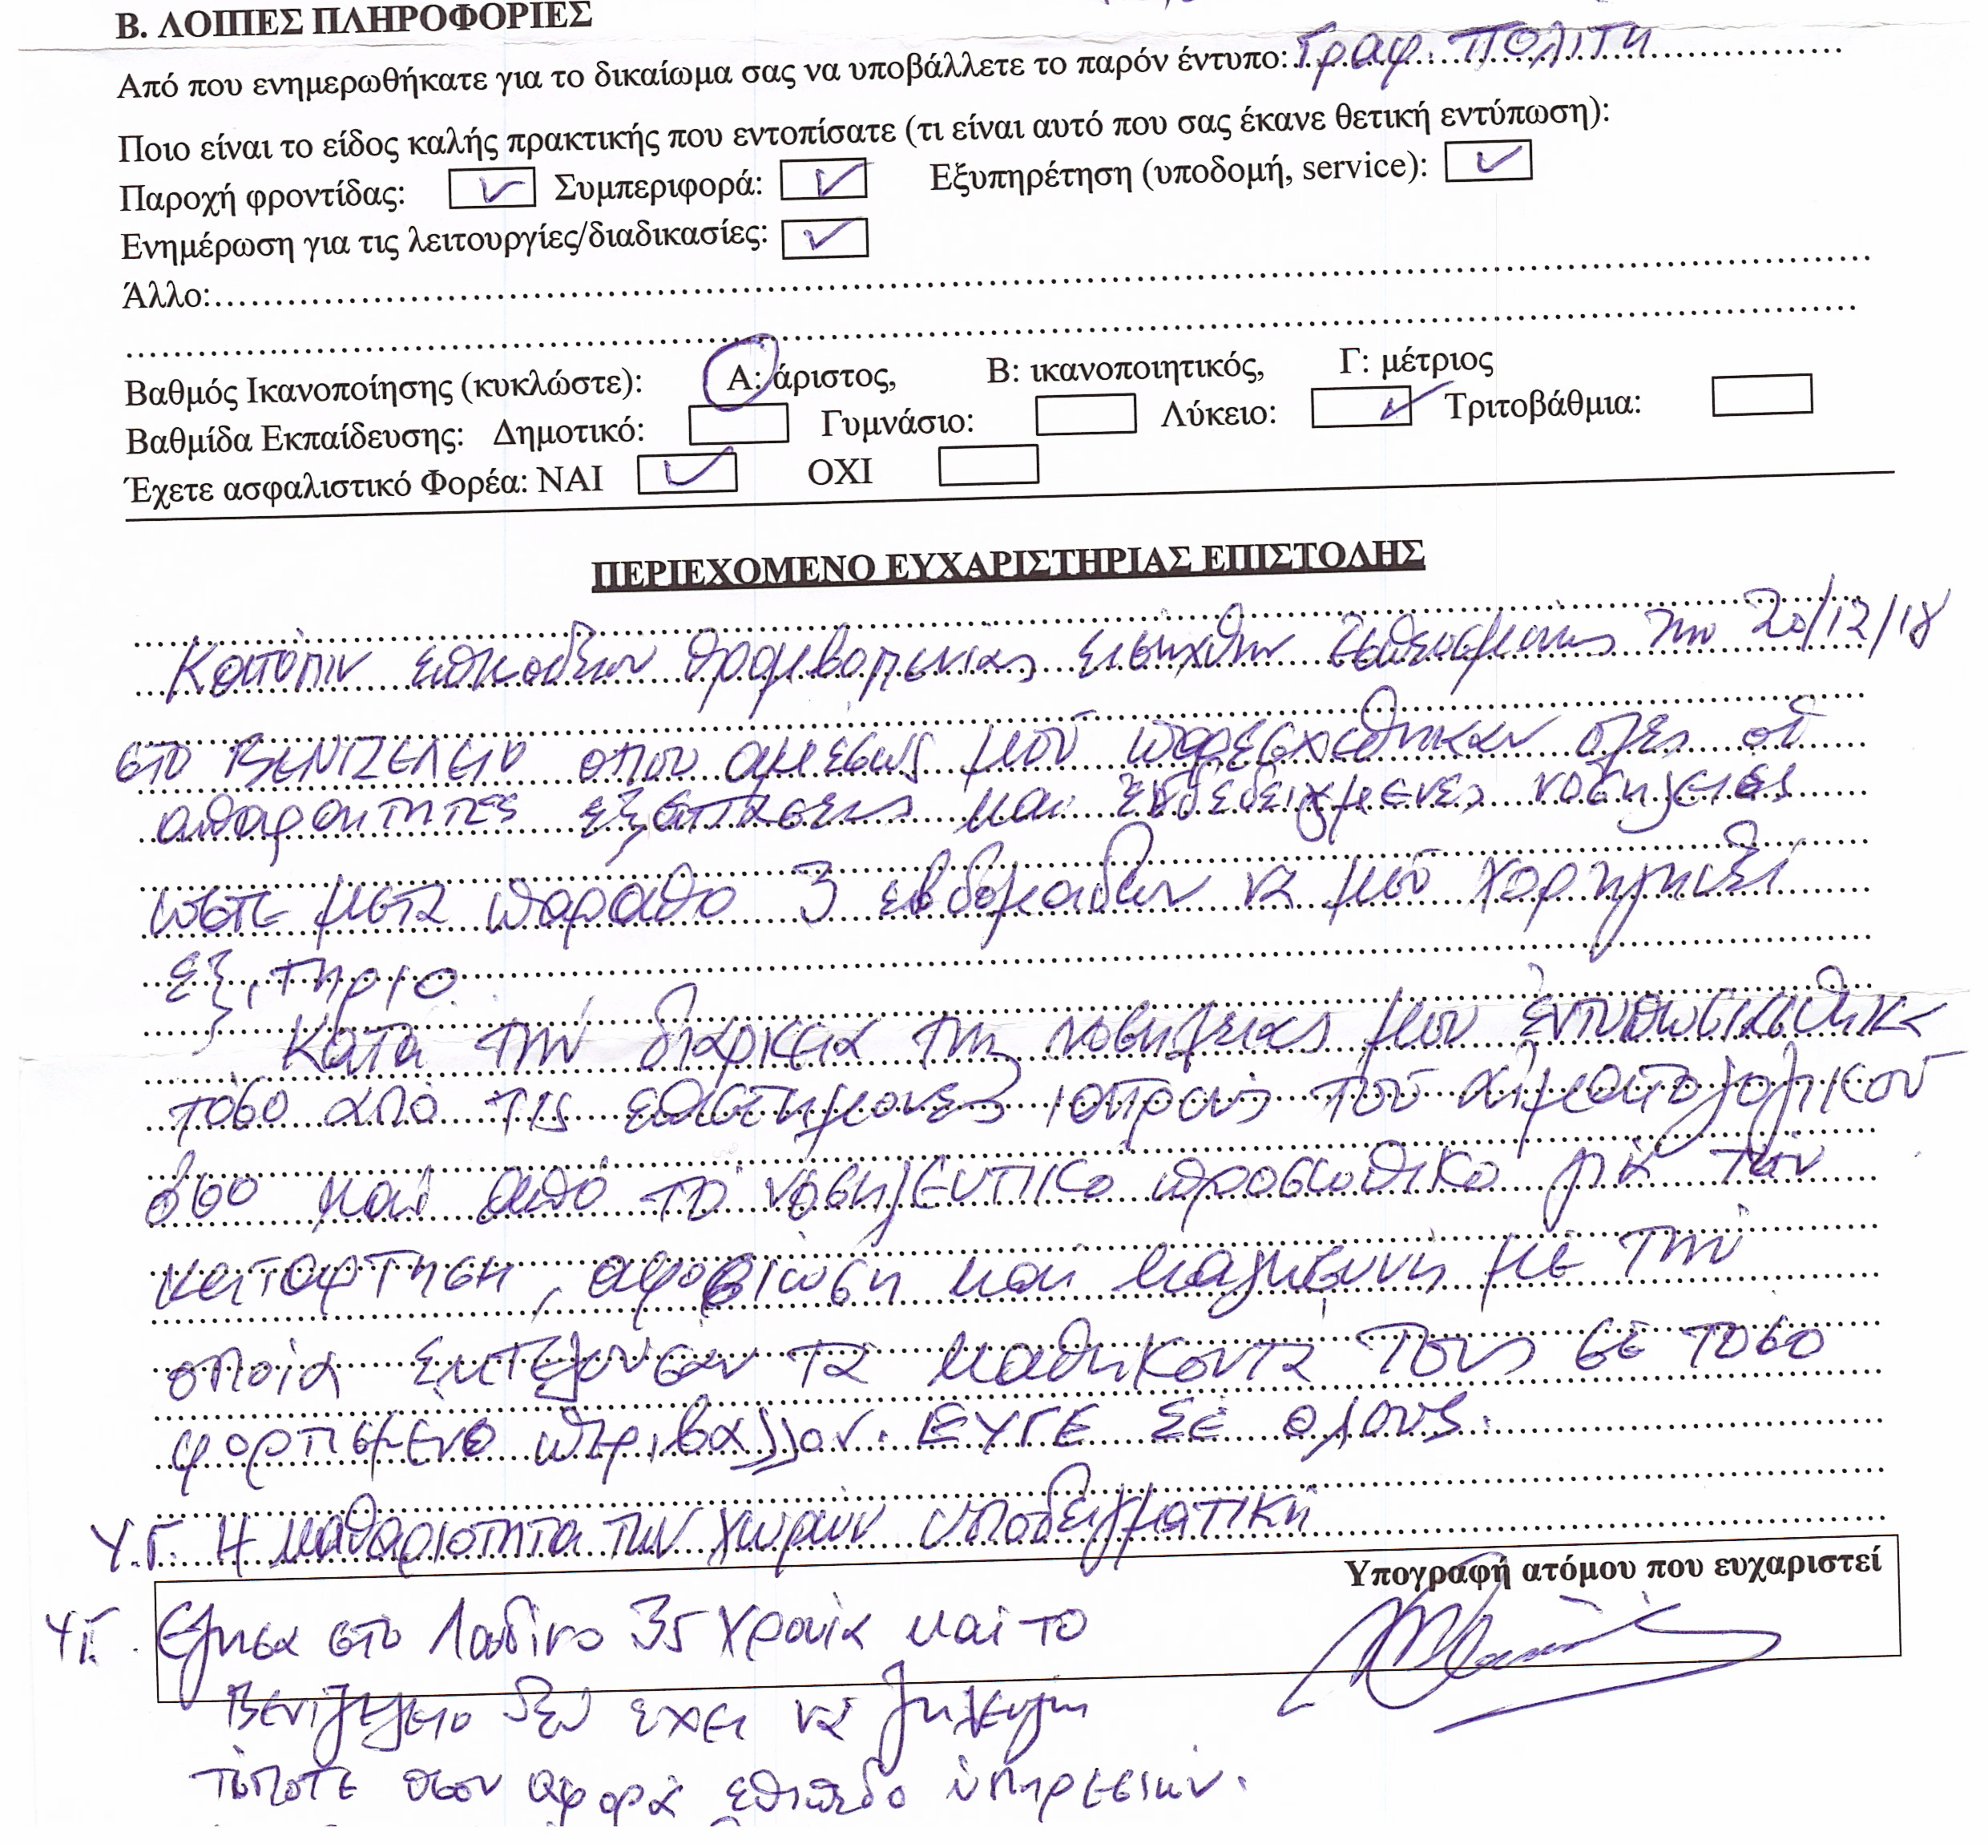 Β. ΛΟΙΠΕΣ ΠΛΗΡΟΦΟΡΙΕΣ
Από που ενημερωθήκατε για το δικαίωμα σας να υποβάλλετε το παρόν έντυπο: Γραφ. Πολίτη
Ποιο είναι το είδος καλής πρακτικής που εντοπίσατε (τι είναι αυτό που σας έκανε θετική εντύπωση):
Παροχή φροντίδας: ✓ Συμπεριφορά: ✓ Εξυπηρέτηση (υποδομή, service): ✓
Ενημέρωση για τις λειτουργίες/διαδικασίες: ✓
Άλλο:
Βαθμός Ικανοποίησης (κυκλώστε): Α: άριστος, Β: ικανοποιητικός, Γ: μέτριος
Βαθμίδα Εκπαίδευσης: Δημοτικό: Γυμνάσιο: Λύκειο: ✓ Τριτοβάθμια:
Έχετε ασφαλιστικό Φορέα: ΝΑΙ ✓ ΟΧΙ
ΠΕΡΙΕΧΟΜΕΝΟ ΕΥΧΑΡΙΣΤΗΡΙΑΣ ΕΠΙΣΤΟΛΗΣ
Κατόπιν επεισοδίων θρομβοπενίας εισήχθην εσπευσμένως την 20/12/18
στο ΒΕΝΙΖΕΛΕΙΟ οπου αμέσως μού παρεσχέθηκαν ολες οι
απαραιτητες εξετασεις και ενδεδειγμενες νοσηλειες
ωστε μετα παροδο 3 εβδομαδων να μού χορηγηθεί
εξιτηριο.
Κατα την διαρκεια της νοσηλειας μου εντυπωσιασθηκα
τόσο από τις επιστημονες ιατρους του αιματολογικού
όσο και από το νοσηλευτικο προσωπικο για την
καταρτηση, αφοσίωση και καλησυνη με την
οποία εκτελουσαν τα καθηκοντα τους σε τοσο
φορτισμένο περιβαλλον. ΕΥΓΕ Σε ολους.
Υ.Γ. Η καθαριοτητα των χωρων υποδειγματική
Υπογραφή ατόμου που ευχαριστεί
ΥΓ. Εζησα στο Λονδίνο 35 χρονια και το
Βενιζελειο δεν εχει να ζηλεψη
τιποτε οσον αφορα επιπεδο υπηρεσιων.